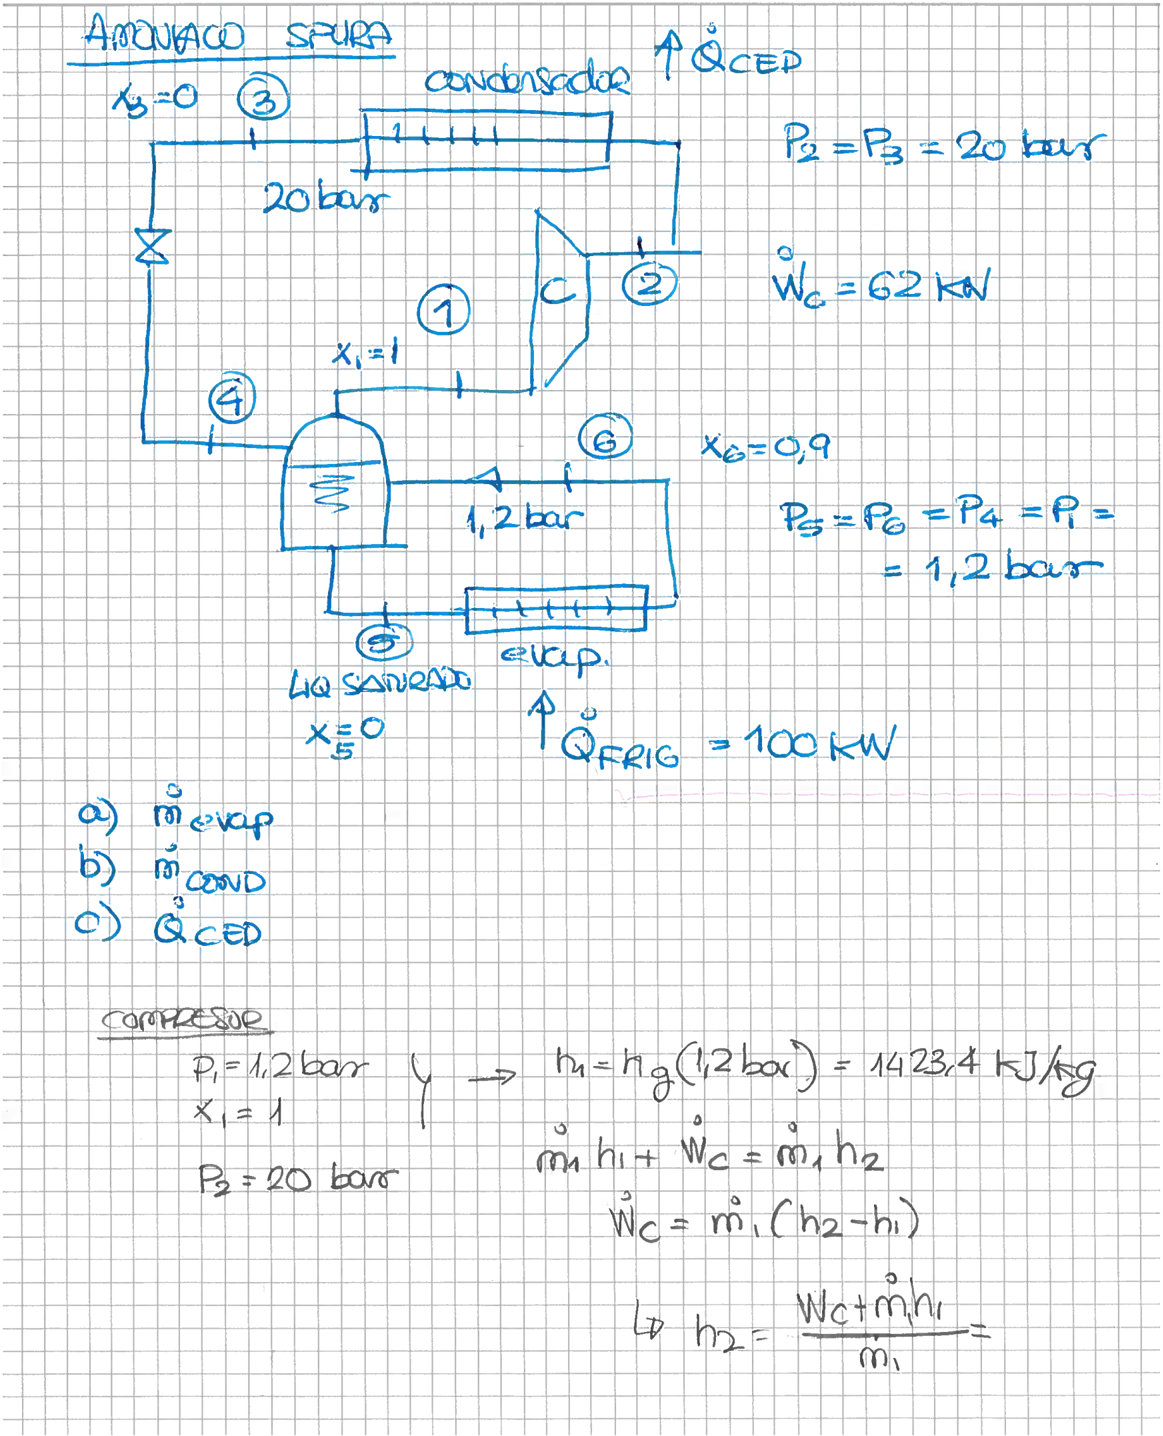 AMONIACO SPURA
Q̇CED
condensador
x₃=0 ③
P₂ = P₃ = 20 bar
20 bar
C ②
Ẇc = 62 kW
①
x₁=1
④
⑥ x₆=0,9
1,2 bar
P₅ = P₆ = P₄ = P₁ =
= 1,2 bar
⑤
evap.
LIQ SATURADO
x₅=0
Q̇FRIG = 100 KW
a) ṁevap
b) ṁCOND
c) Q̇CED
COMPRESOR
P₁ = 1,2 bar } → h₁ = hg (1,2 bar) = 1423,4 kJ/kg
x₁ = 1
ṁ₁ h₁ + Ẇc = ṁ₁ h₂
P₂ = 20 bar
Ẇc = ṁ₁ (h₂ - h₁)
↳ h₂ = (Wc + ṁ₁h₁) / ṁ₁ =